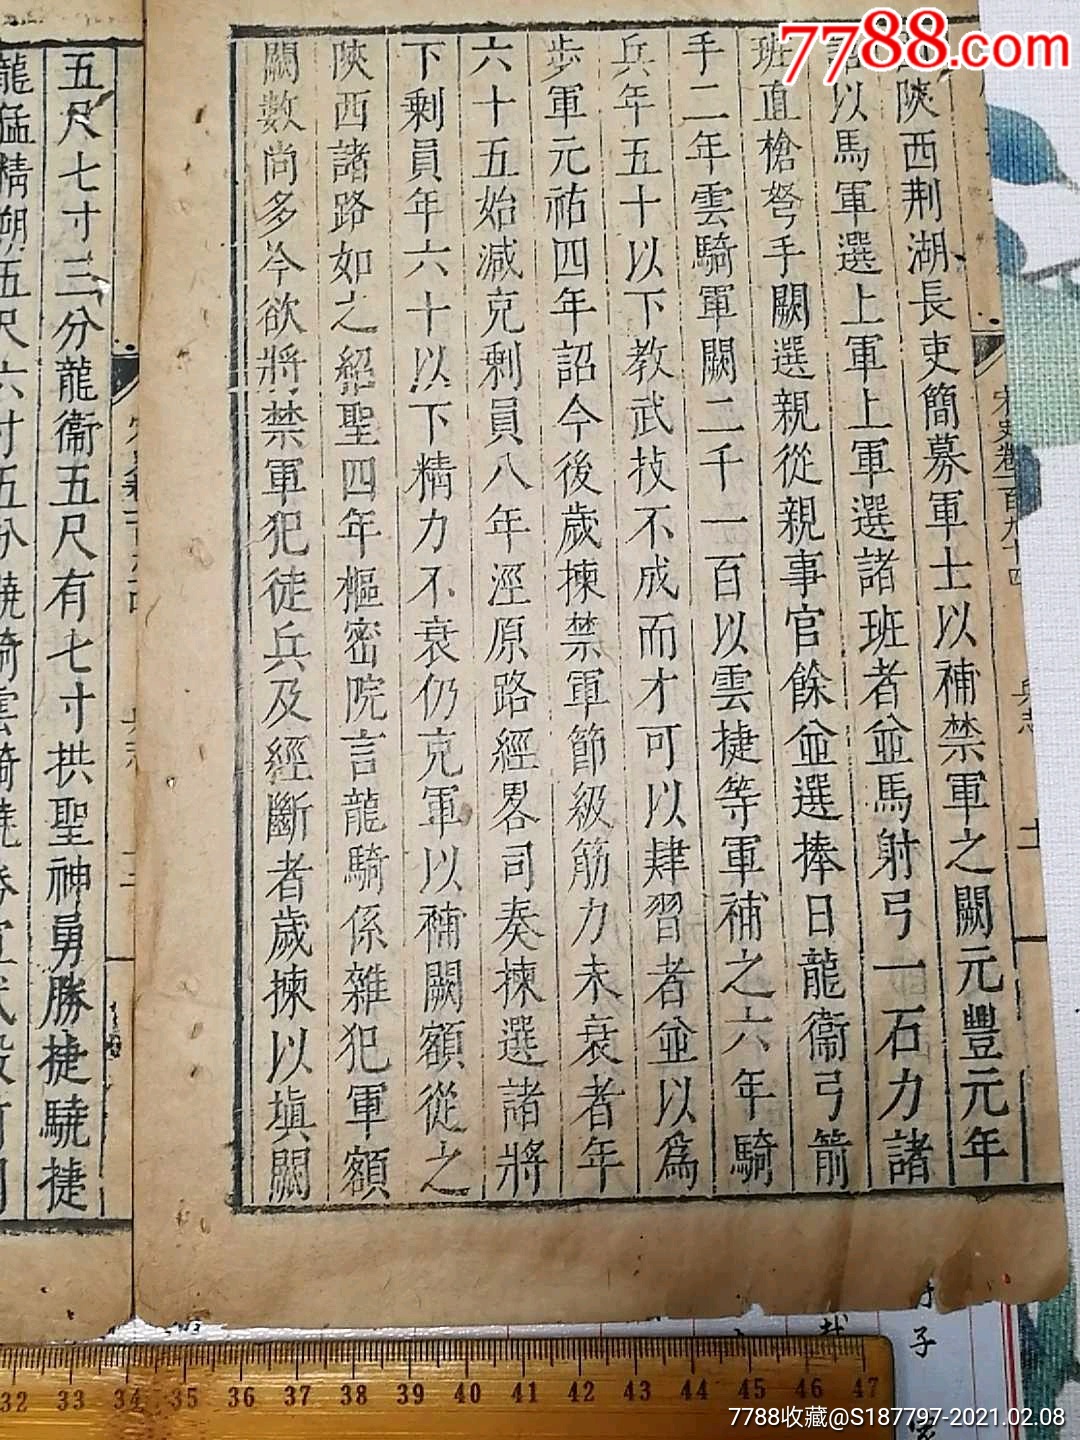 7788.com
陝西荆湖長吏簡募軍士以補禁軍之闕元豐元年
詔以馬軍選上軍上軍選諸班者並馬射弓一石力諸
班直槍弩手闕選親從親事官餘並選捧日龍衞弓箭
手二年雲騎軍闕二千一百以雲捷等軍補之六年騎
兵年五十以下教武技不成而才可以肄習者並以爲
歩軍元祐四年詔今後歲揀禁軍節級筋力未衰者年
六十五始減克剩員八年涇原路經畧司奏揀選諸將
下剩員年六十以下精力不衰仍克軍以補闕額從之
陝西諸路如之紹聖四年樞密院言龍騎係雜犯軍額
闕數尚多今欲將禁軍犯徒兵及經斷者歲揀以塡闕
宋史卷一百九十四
兵志
五尺七寸三分龍衞五尺有七寸拱聖神勇勝捷驍捷
龍猛精朔五尺六寸五分驍騎雲騎驍勝宣武殿前司
32 33 34 35 36 37 38 39 40 41 42 43 44 45 46 47
子
7788收藏@S187797-2021.02.08